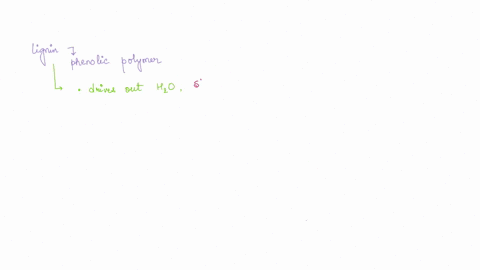 lignin →
phenolic polymer
↳ • drives out H₂O.